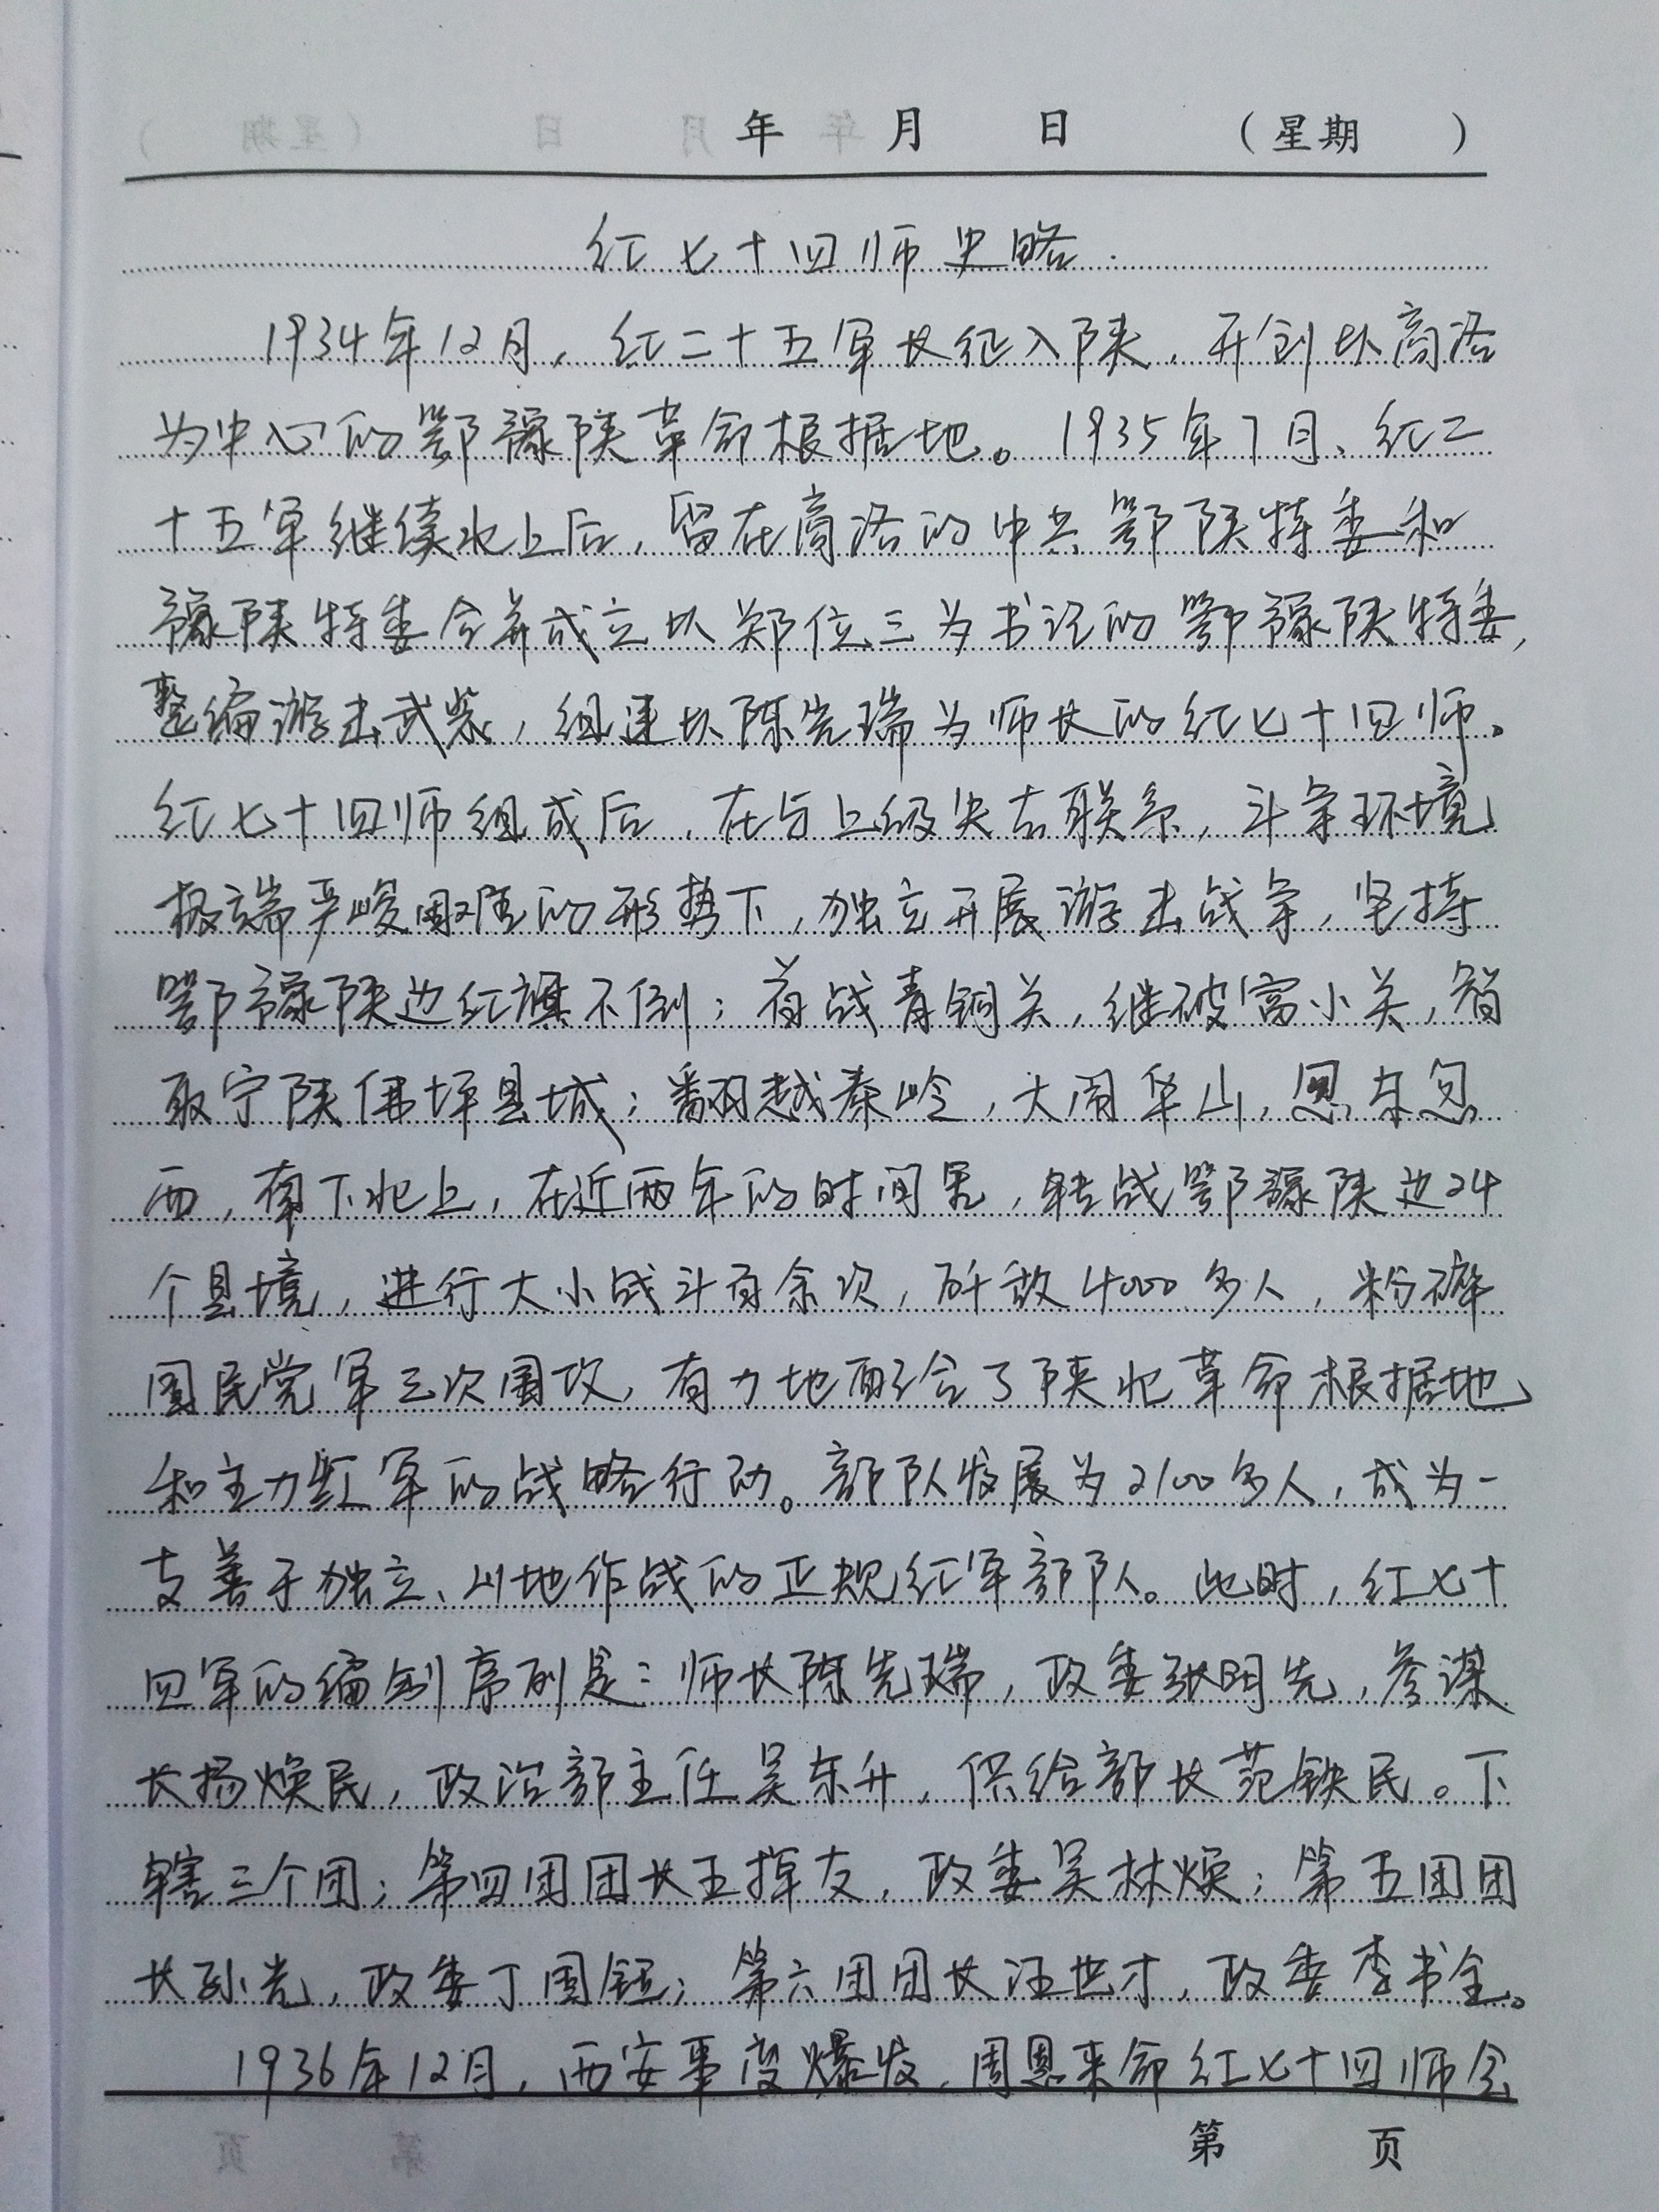 年 月 日 (星期 )
红七十四师史略
1934年12月，红二十五军长征入陕，开创以商洛
为中心的鄂豫陕革命根据地。1935年7月、红二
十五军继续北上后，留在商洛的中共鄂陕特委和
豫陕特委合并成立以郑位三为书记的鄂豫陕特委，
整编游击武装，组建以陈先瑞为师长的红七十四师。
红七十四师组成后，在与上级失去联系，斗争环境
极端严峻困难的形势下，独立开展游击战争，坚持
鄂豫陕边红旗不倒；首战青铜关，继破富水关，智
取宁陕佛坪县城；翻越秦岭，大闹华山，忽东忽
西，南下北上，在近两年的时间里，转战鄂豫陕边24
个县境，进行大小战斗百余次，歼敌4000多人，粉碎
国民党军三次围攻，有力地配合了陕北革命根据地
和主力红军的战略行动。部队发展为2100多人，成为一
支善于独立、山地作战的正规红军部队。此时，红七十
四军的编制序列是：师长陈先瑞，政委张明先，参谋
长杨焕民，政治部主任吴东升，供给部长范铁民。下
辖三个团；第四团团长王掉友，政委吴林焕；第五团团
长孙光，政委丁国钰；第六团团长汪世才，政委李书全。
1936年12月，西安事变爆发，周恩来命红七十四师全
第 页